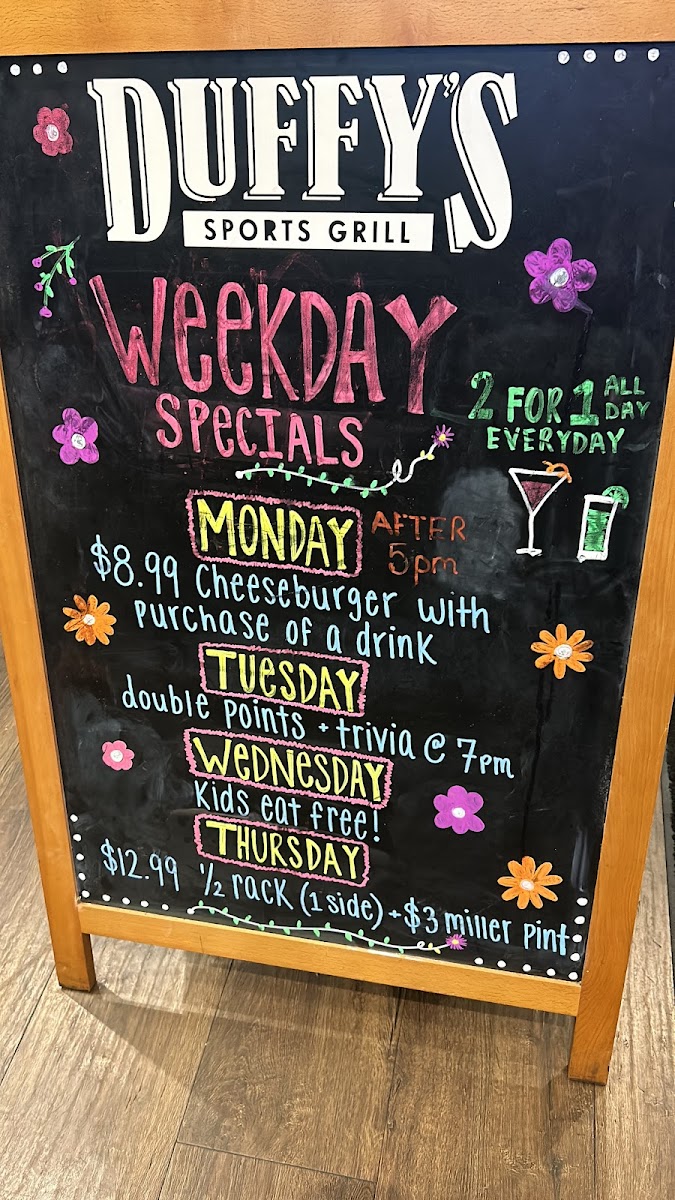 DUFFY'S
SPORTS GRILL
WEEKDAY
SPECIALS
2 FOR 1 ALL DAY
EVERYDAY
MONDAY AFTER 5pm
$8.99 Cheeseburger with
purchase of a drink
TUESDAY
double points + trivia @ 7pm
WEDNESDAY
kids eat free!
THURSDAY
$12.99 1/2 rack (1 side) + $3 miller pint